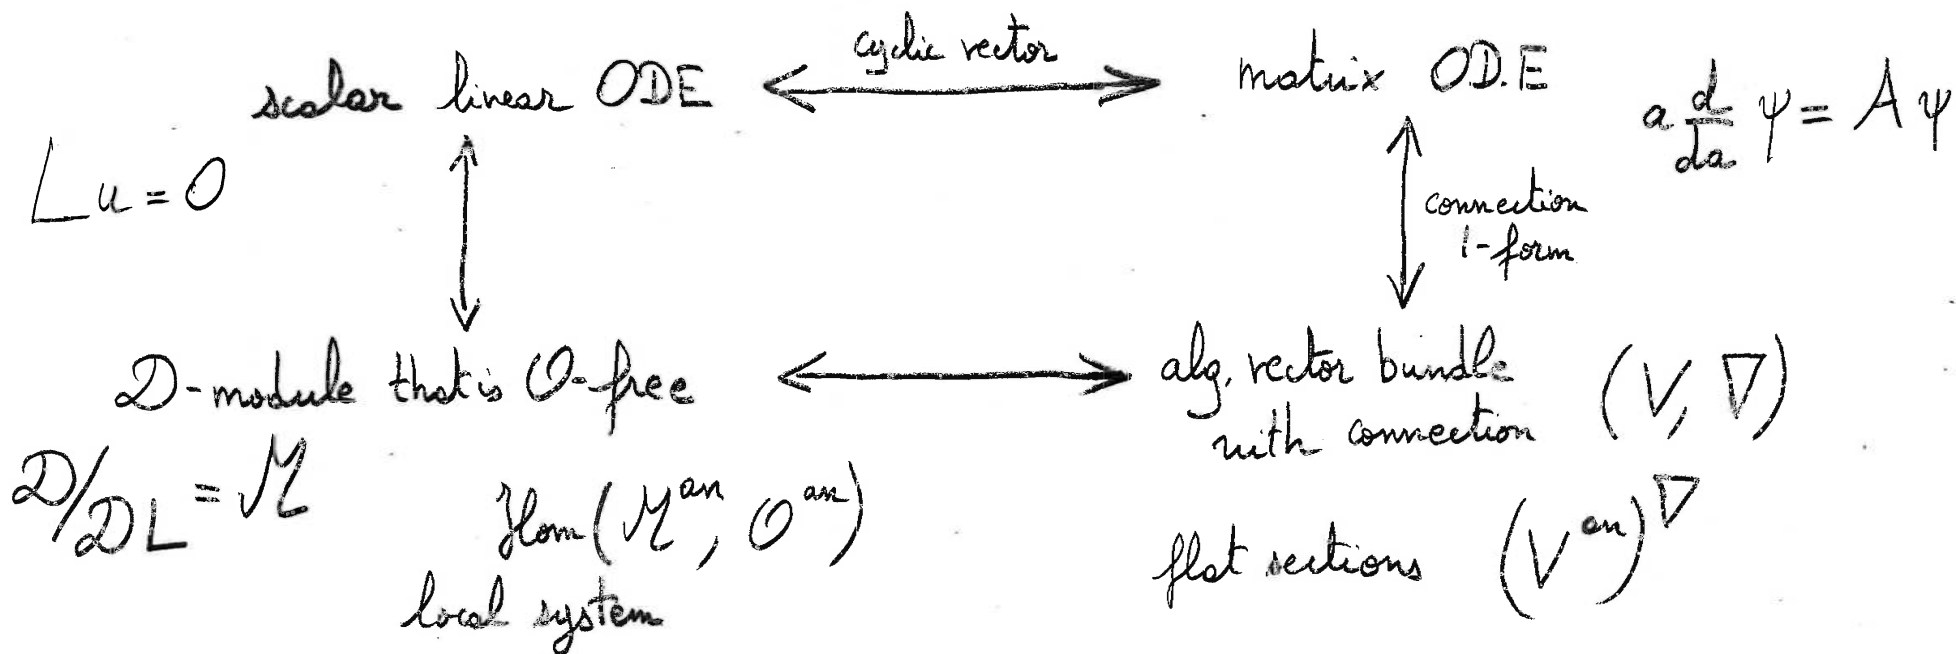 scalar linear ODE
cyclic vector
matrix OD.E
a d/da ψ = A ψ
L u = 0
connection
1-form
D-module that is O-free
alg. vector bundle
with connection
(V, ∇)
D/DL = M
Hom(M^an, O^an)
local system
flat sections (V^an)^∇